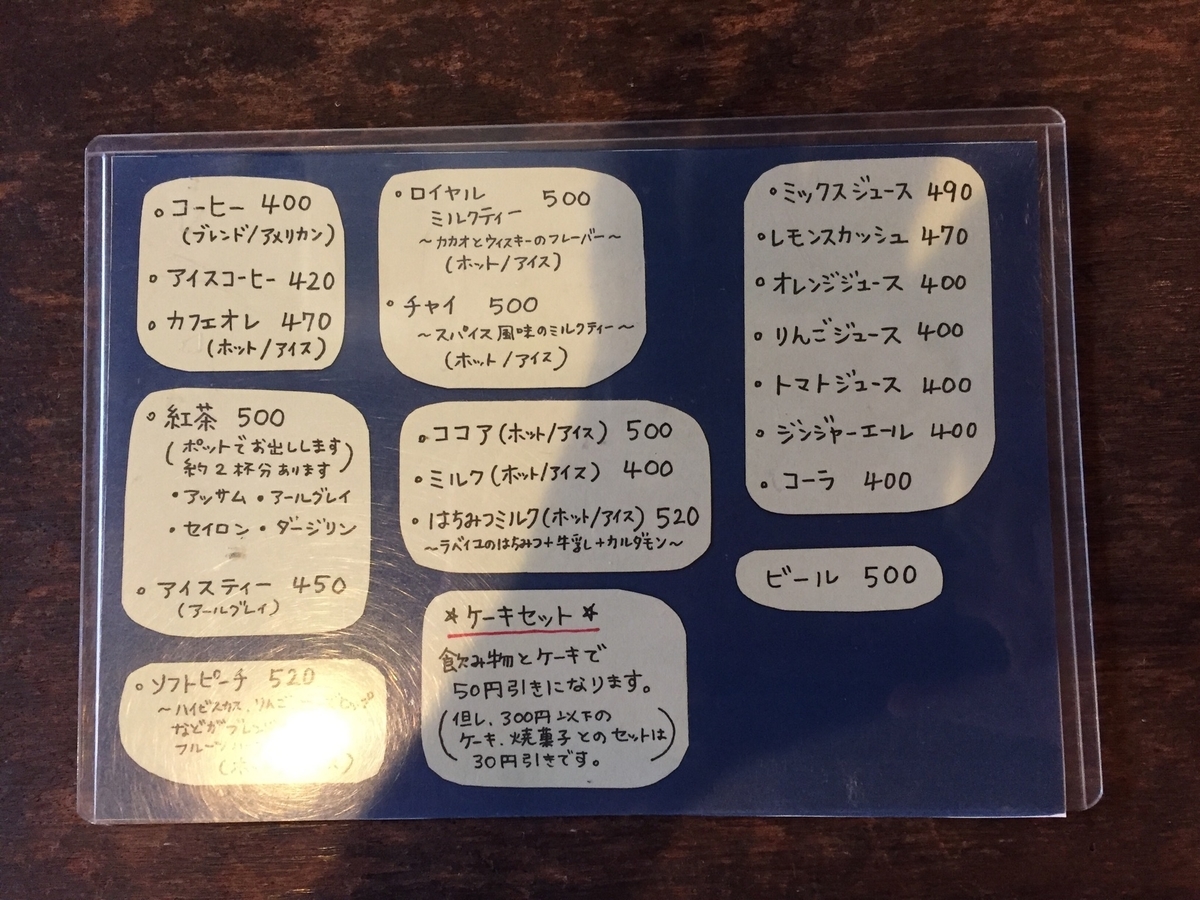 ・コーヒー 400
(ブレンド/アメリカン)
・アイスコーヒー 420
・カフェオレ 470
(ホット/アイス)
・紅茶 500
(ポットでお出しします
約2杯分あります)
・アッサム ・アールグレイ
・セイロン ・ダージリン
・アイスティー 450
(アールグレイ)
・ソフトピーチ 520
〜ハイビスカス、りんご
などがブレンド
フルーツ
・ロイヤル
ミルクティー 500
〜カカオとウィスキーのフレーバー〜
(ホット/アイス)
・チャイ 500
〜スパイス風味のミルクティー〜
(ホット/アイス)
・ココア(ホット/アイス) 500
・ミルク(ホット/アイス) 400
・はちみつミルク(ホット/アイス) 520
〜ラベイユのはちみつ+牛乳+カルダモン〜
☆ケーキセット☆
飲み物とケーキで
50円引きになります。
(但し、300円以下の
ケーキ、焼菓子とのセットは
30円引きです。)
・ミックスジュース 490
・レモンスカッシュ 470
・オレンジジュース 400
・りんごジュース 400
・トマトジュース 400
・ジンジャーエール 400
・コーラ 400
ビール 500